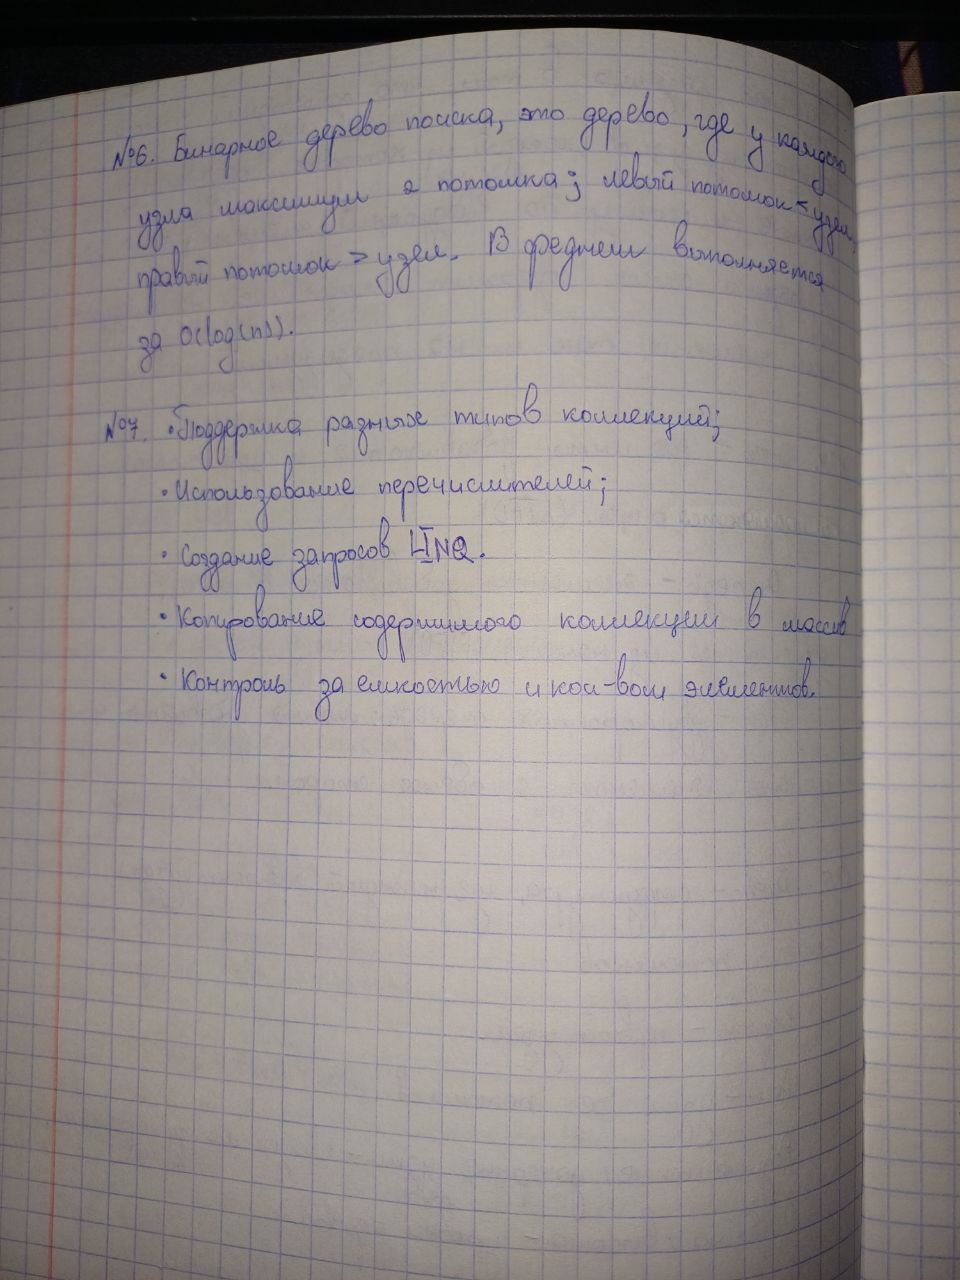 №6. Бинарное дерево поиска, это дерево, где у каждого
узла максимум 2 потомка; левый потомок < узел,
правый потомок > узел. В среднем выполняется
за O(log(n)).
№7. • Поддержка разных типов коллекций;
• Использование перечислителей;
• Создание запросов LINQ.
• Копирование содержимого коллекции в массив
• Контроль за емкостью и кол-вом элементов.